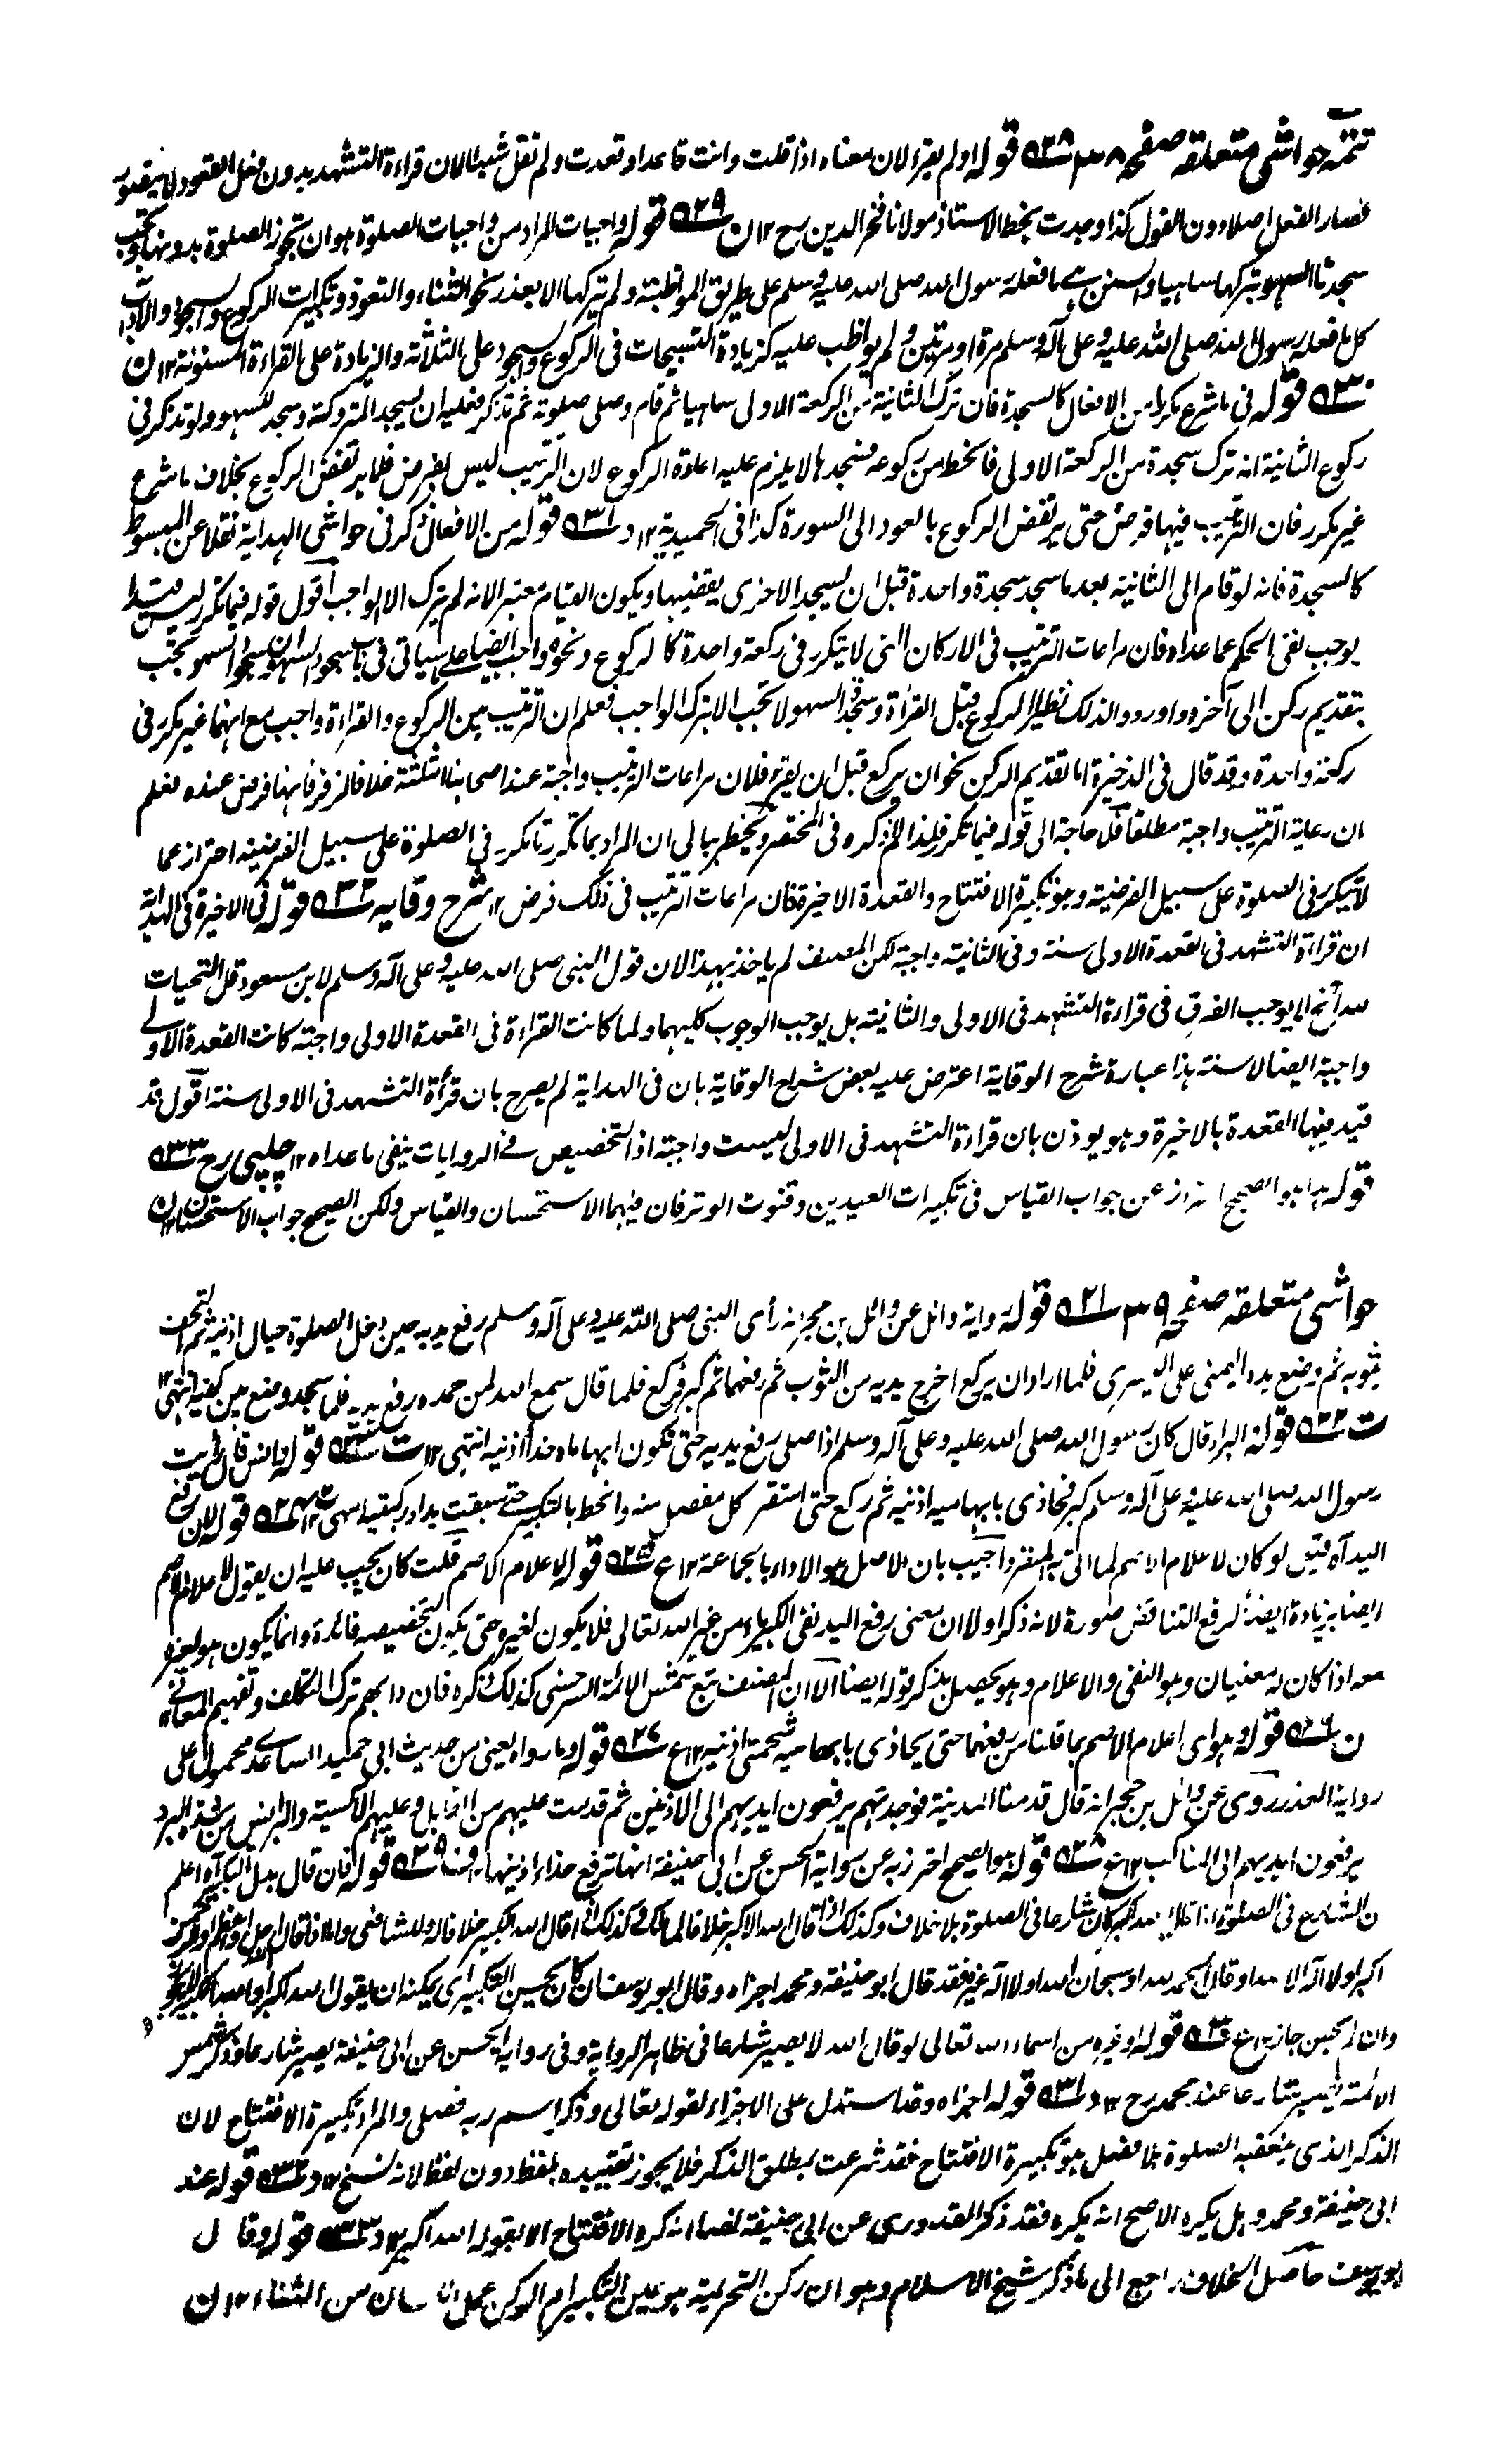 تتمه حواشی متعلقه صفحه ۳۸ ۵۲۸ قوله او لم یقرأ لان معناه اذا قلت وانت قاعد او قعدت ولم تقل شیئا لان قراءة التشهد بدون فعل القعود لا یتصور
فصار الفعل اصلا دون القول کذا وجدت بخط الاستاذ مولانا فخر الدین رح ۱۲ ن ۵۲۹ قوله واجبات المراد من واجبات الصلوة هو ان تجوز الصلوة بدونها وتجب
سجدتا السهو بترکها ساهیا والسنن هی ما فعله رسول الله صلی الله علیه وسلم علی طریق المواظبة ولم یترکها الا بعذر نحو الثناء والتعوذ وتکبیرات الرکوع والسجود والآداب
کل ما فعله رسول الله صلی الله علیه وعلی آله وسلم مرة او مرتین ولم یواظب علیه کزیادة التسبیحات فی الرکوع والسجود علی الثلاثة والزیادة علی القراءة المسنونة ۱۲ ن
۵۳۰ قوله فی ما شرع مکررا من الافعال کالسجدة فان ترک الثانیة من الرکعة الاولی ساهیا ثم قام وصلی صلوته ثم تذکر فعلیه ان یسجد المتروکة وسجد للسهو ولو تذکر فی
رکوع الثانیة انه ترک سجدة من الرکعة الاولی فانخط من رکوعه فسجدها لا یلزم علیه اعادة الرکوع لان الترتیب لیس بفرض فلا یرتفض الرکوع بخلاف ما شرع
غیر مکرر فان الترتیب فیها فرض حتی یرتفض الرکوع بالعود الی السورة کذا فی الحمیدیة ۱۲ د ۵۳۱ قوله من الافعال ذکر فی حواشی الهدایة نقلا عن المبسوط
کالسجدة فانه لو قام الی الثانیة بعد ما سجد سجدة واحدة قبل ان یسجد الاخری یقضیها ویکون القیام معتبرا لانه لم یترک الا الواجب اقول قوله فیما تکرر لیس قیدا
یوجب نفی الحکم عما عداه فان مراعات الترتیب فی الارکان التی لا یتکرر فی رکعة واحدة کالرکوع ونحوه واجب ایضا علی ما سیاتی فی باب سجود السهو ان سجود السهو تجب
بتقدیم رکن الی آخره واوردوا لذلک نظیر الرکوع قبل القرأة وسجدة السهو لا تجب الا بترک الواجب فعلم ان الترتیب بین الرکوع والقراءة واجب مع انهما غیر مکرر فی
رکعة واحدة وقد قال فی الذخیرة اما تقدیم الرکن نحو ان یرکع قبل ان یقرء فلان مراعات الترتیب واجبة عند اصحابنا الثلثة خلافا لزفر فانها فرض عنده فعلم
ان رعایة الترتیب واجبة مطلقا فلا حاجة الی قوله فیما تکرر فلهذا لم اذکره فی المختصر ویخطر ببالی ان المراد بما تکرر ما تکرر فی الصلوة علی سبیل الفرضیة احتراز عما
لا یتکرر فی الصلوة علی سبیل الفرضیة وهو تکبیرة الافتتاح والقعدة الاخیرة فان مراعات الترتیب فی ذلک فرض ۱۲ شرح وقایه ۵۳۲ قوله فی الاخیرة فی الهدایة
ان قراءة التشهد فی القعدة الاولی سنة وفی الثانیة واجبة لکن المصنف لم یاخذ بهذا لان قول النبی صلی الله علیه وعلی آله وسلم لابن مسعود قل التحیات
لله الخ لا یوجب الفرق فی قراءة التشهد فی الاولی والثانیة بل یوجب الوجوب کلیهما ولما کانت القراءة فی القعدة الاولی واجبة کانت القعدة الاولی
واجبة ایضا لا سنة هذا عبارة شرح الوقایة اعترض علیه بعض شراح الوقایة بان فی الهدایة لم یصرح بان قرأة التشهد فی الاولی سنة اقول قد
قید فیها القعدة بالاخیرة وهو یوذن بان قراءة التشهد فی الاولی لیست واجبة اذ التخصیص فی الروایات ینفی ما عداه ۱۲ چلپی رح ۵۳۳
قوله هذا هو الصحیح احتراز عن جواب القیاس فی تکبیرات العیدین وقنوت الوتر فان فیهما الاستحسان والقیاس ولکن الصحیح جواب الاستحسان ۱۲ ن
حواشی متعلقه صفحه ۳۹ ۵۲۱ قوله روایة وائل عن وائل بن حجر انه رأی النبی صلی الله علیه وعلی آله وسلم رفع یدیه حین دخل الصلوة حیال اذنیه ثم التحف
بثوبه ثم وضع یده الیمنی علی الیسری فلما اراد ان یرکع اخرج یدیه من الثوب ثم رفعهما ثم کبر فرکع فلما قال سمع الله لمن حمده رفع یدیه فلما سجد وضع بین کفیه انتهی ۱۲
ت ۵۲۲ قوله البراء قال کان رسول الله صلی الله علیه وعلی آله وسلم اذا صلی رفع یدیه حتی تکون ابهاماه حذاء اذنیه انتهی ۱۲ ت ۵۲۳ قوله وانس قال رأیت
رسول الله صلی الله علیه وعلی آله وسلم کبر فحاذی بابهامیه اذنیه ثم رکع حتی استقر کل مفصل منه وانحط بالتکبیر حتی سبقت یداه رکبتیه انتهی ۱۲ ت ۵۲۴ قوله لان رفع
الید آه قیل لو کان لاعلام الاصم لما اتی به المنفرد اجیب بان الاصل هو الاداء بالجماعة ۱۲ ع ۵۲۵ قوله لاعلام الاصم قلت کان یجب علیه ان یقول لاعلام الاصم
ایضا بزیادة ایضا لرفع التناقض صورة لانه ذکر اولا ان معنی رفع الید نفی الکبریاء من غیر الله تعالی فلا یکون لغیره حتی یکون لتخصیصه فائدة وانما یکون هو لغیره
معه اذا کان له معنیان وهو النفی والاعلام وهو یحصل بذکر قوله ایضا الا ان المصنف تبع شمس الائمة السرخسی کذلک ذکره فان دابهم ترک التکلف وتفهیم المعانی ۱۲
ن ۵۲۶ قوله وهو ای اعلام الاصم بما قلنا من رفعهما حتی یحاذی بابهامیه شحمتی اذنیه ۱۲ ع ۵۲۷ قوله وما رواه یعنی من حدیث ابی حمید الساعدی محمول علی
روایة العذر روی عن وائل بن حجر انه قال قدمنا المدینة فوجدتهم یرفعون ایدیهم الی الاذنین ثم قدمت علیهم من القابل وعلیهم الاکسیة والبرانس من شدة البرد
یرفعون ایدیهم الی المناکب ۱۲ ع ۵۲۸ قوله هو الصحیح احترز به عن روایة الحسن عن ابی حنیفة انها ترفع حذاء اذنیها ۵۲۹ قوله فان قال بدل التکبیر آه اعلم
ان الشارع فی الصلوة اذا قال الله اکبر کان شارعا فی الصلوة بلا خلاف وکذلک اذا قال الله الاکبر خلافا لمالک وکذلک اذا قال الله الکبیر خلافا له وللشافعی واذا قال الله اجل او اعظم او الرحمن
اکبر او لا اله الا الله او قال الحمد لله او سبحان الله او لا اله غیره فقد قال ابو حنیفة ومحمد اجزاه وقال ابو یوسف ان کان یحسن التکبیر ای یمکنه ان یقول الله اکبر او الله الکبیر لا یجوز
وان لم یحسن جاز ۱۲ ع ۵۳۰ قوله او غیره من اسماء الله تعالی لو قال الله لا یصیر شارعا فی ظاهر الروایة وفی روایة الحسن عن ابی حنیفة یصیر شارعا وذکر شمس
الائمة یصیر شارعا عند محمد رح ۱۲ د ۵۳۱ قوله اجزاه وقد استدل علی الاجزاء لقوله تعالی وذکر اسم ربه فصلی والمراد تکبیرة الافتتاح لان
الذکر الذی یتعقبه الصلوة بلا فصل هو تکبیرة الافتتاح فقد شرعت بمطلق الذکر فلا یجوز تقییده بلفظ دون لفظ لانه نسخ ۱۲ د ۵۳۲ قوله عند
ابی حنیفة ومحمد وهل یکره الاصح انه یکره فقد ذکر القدوری عن ابی حنیفة نصا انه کره الافتتاح الا بقوله الله اکبر ۱۲ د ۵۳۳ قوله وقال
ابو یوسف حاصل الخلاف راجع الی ما ذکر شیخ الاسلام وهو ان رکن التحریمة هو عین التکبیر ام الرکن عمل اللسان من الثناء ۱۲ ن